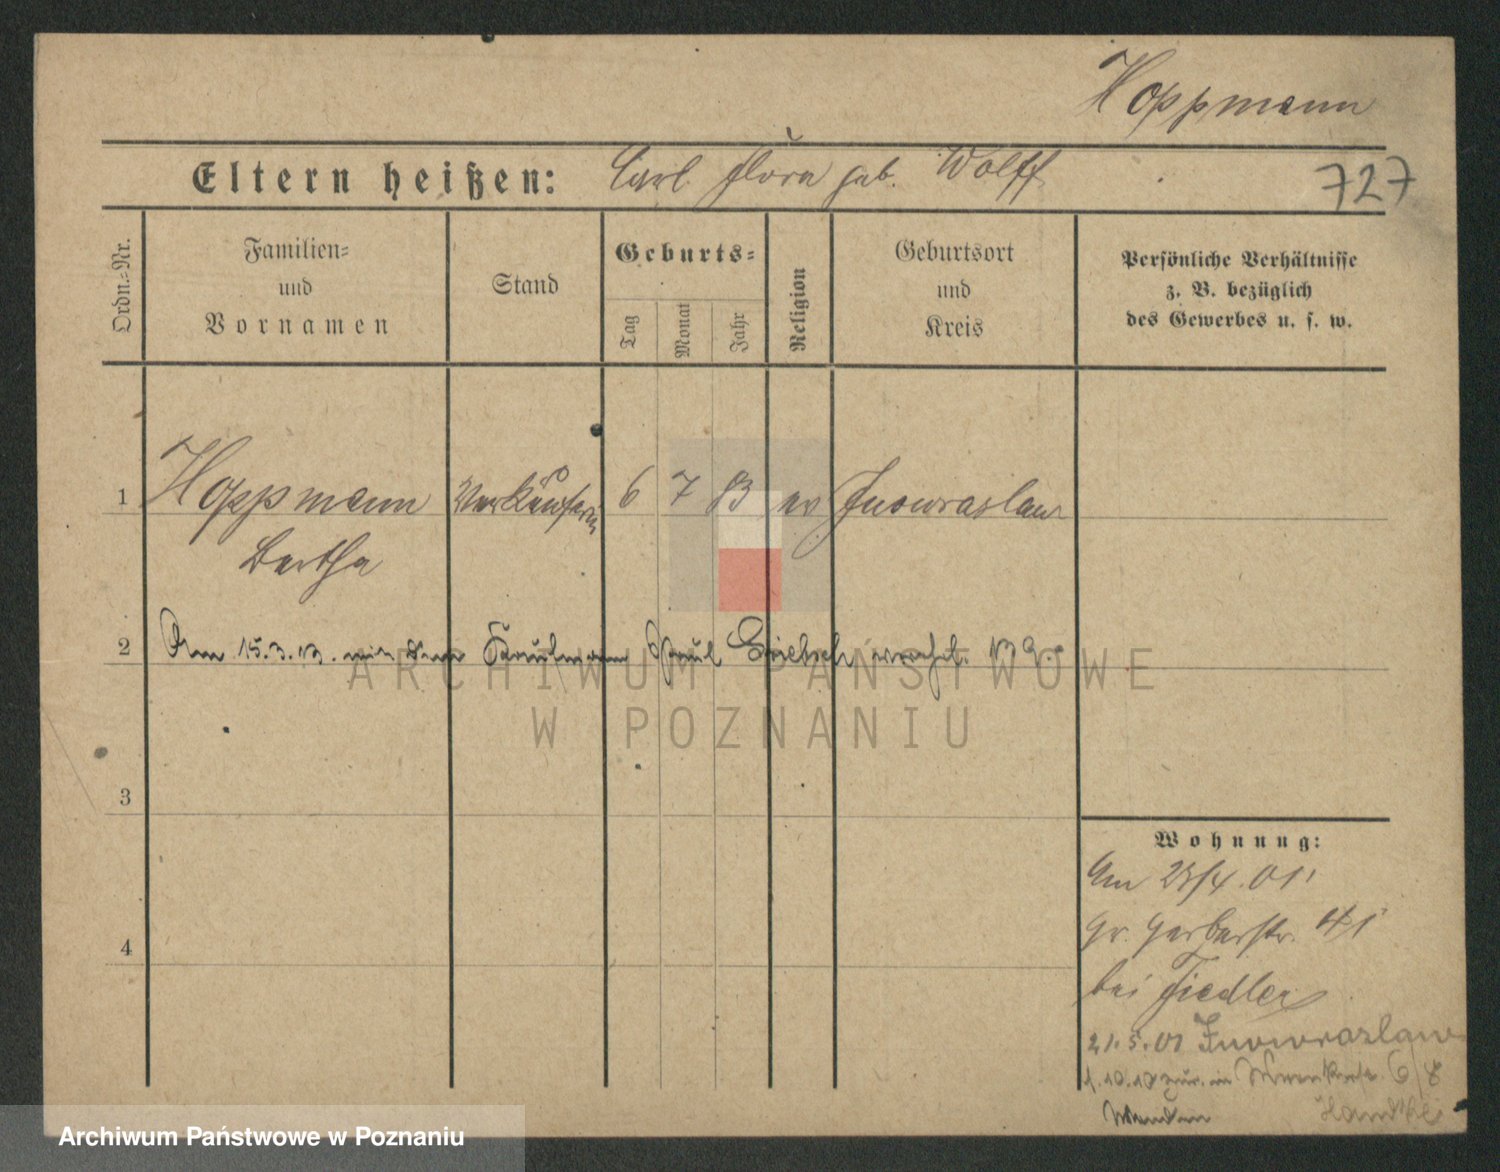 Hoppmann
Eltern heißen: Carl Flora geb. Wolff
727
Ordn.-Nr.
Familien-
und
Vornamen
Stand
Geburts-
Tag
Monat
Jahr
Religion
Geburtsort
und
Kreis
Persönliche Verhältnisse
z. B. bezüglich
des Gewerbes u. s. w.
1 Hoppmann Verkäuferin 6 7 83 ev Inowraslaw
Bertha
2 Am 15.3.13. mit dem Kaufmann Paul verh.
ARCHIWUM PAŃSTWOWE
W POZNANIU
3
Wohnung:
Am 23/4.01.
gr. Gerberstr. 41
4
bei Fiedler
21.5.01 Inowrazlaw
1.10.10 zur. in 6/8
Wenden
Archiwum Państwowe w Poznaniu